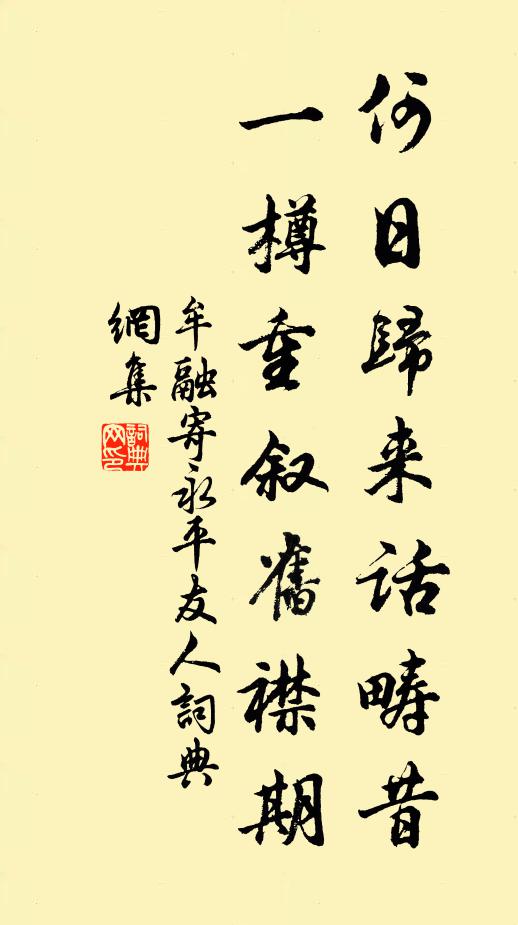 何日歸来話疇昔
一樽重叙舊襟期
牟融寄永平友人詞典
網集
詞典网印